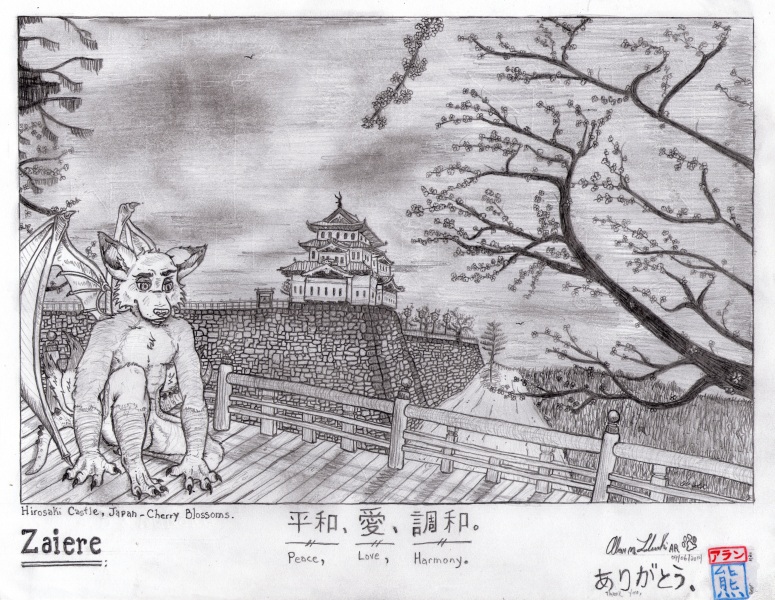 Hirosaki Castle, Japan - Cherry Blossoms.
Zaiere
平和、愛、調和。
Peace, Love, Harmony.
AR
アラン
ありがとう。
熊
Thank You,